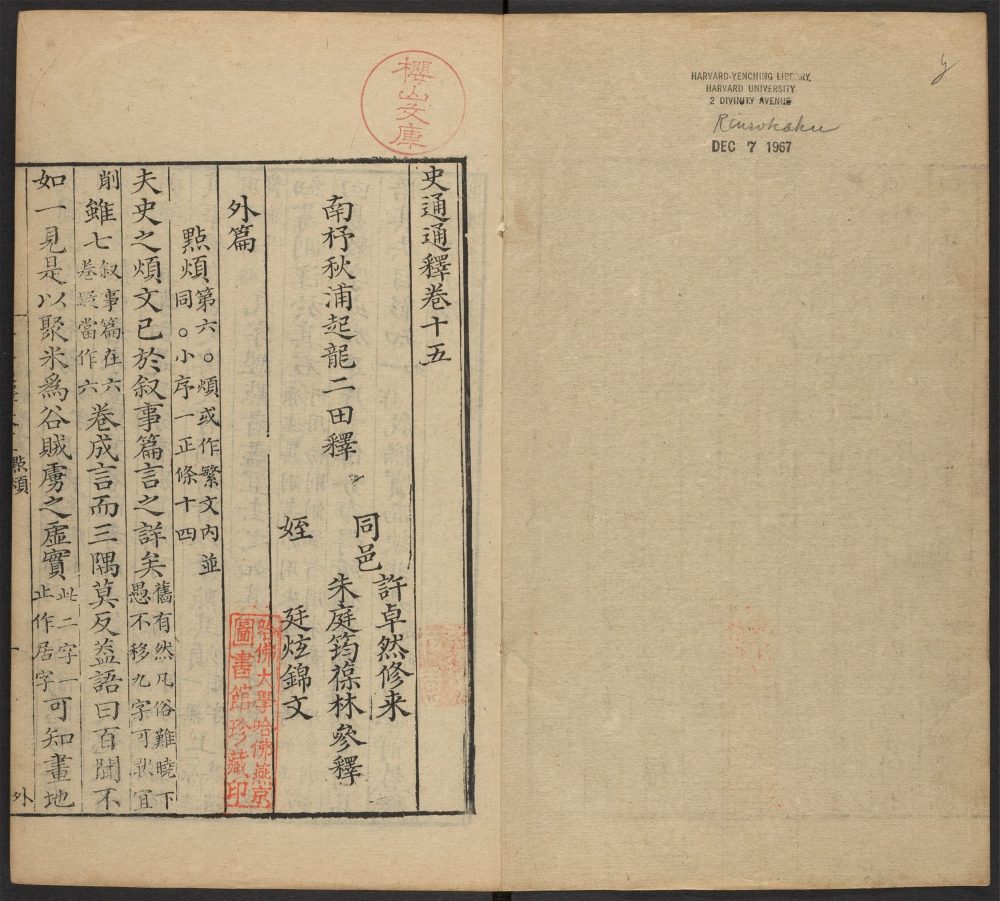 HARVARD-YENCHING LIBRARY
HARVARD UNIVERSITY
2 DIVINITY AVENUE
Rinrokaku
DEC 7 1967
櫻山文庫
史通通釋卷十五
南杼秋浦起龍二田釋
同邑
許卓然修来
朱庭筠葆林參釋
姪
廷炫錦文
外篇
點煩第六○煩或作繁文内並
同○小序一正條十四
夫史之煩文已於叙事篇言之詳矣舊有然凡俗難曉下
愚不移九字可㸔宜
削雖七叙事篇在六
卷㸃當作六卷成言而三隅莫反葢語曰百聞不
如一見是以聚米爲谷賊虜之虛實此二字一
止作居字可知畫地
點煩
一
外
哈佛大學哈佛燕京
圖書館珍藏印